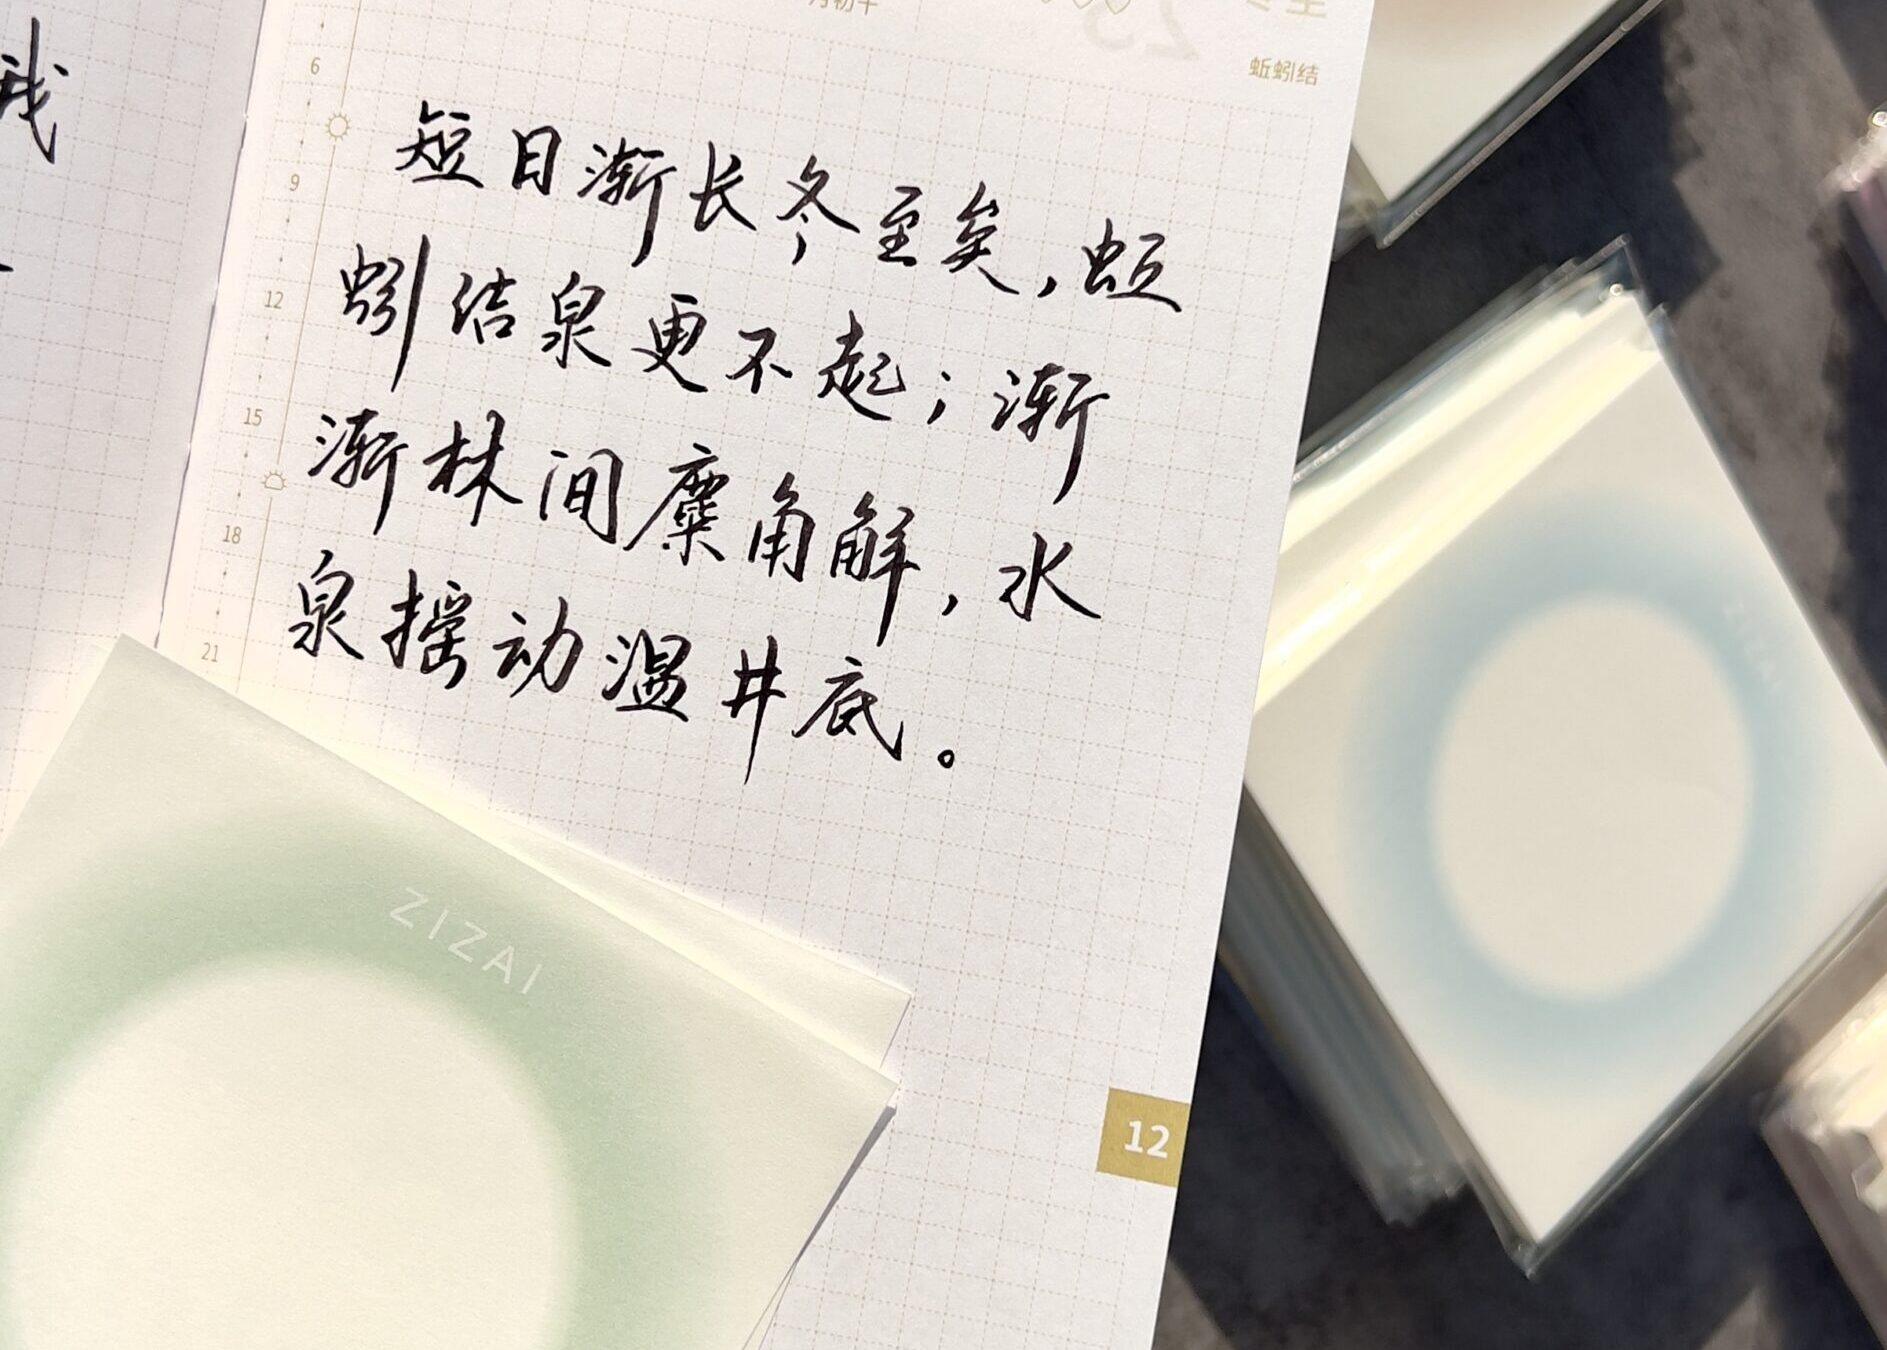 我
蚯蚓结
6
9
12
15
18
21
短日渐长冬至矣,蚯
蚓结泉更不起;渐
渐林间麋角解,水
泉摇动温井底。
ZIZAI
12
ZIZAI